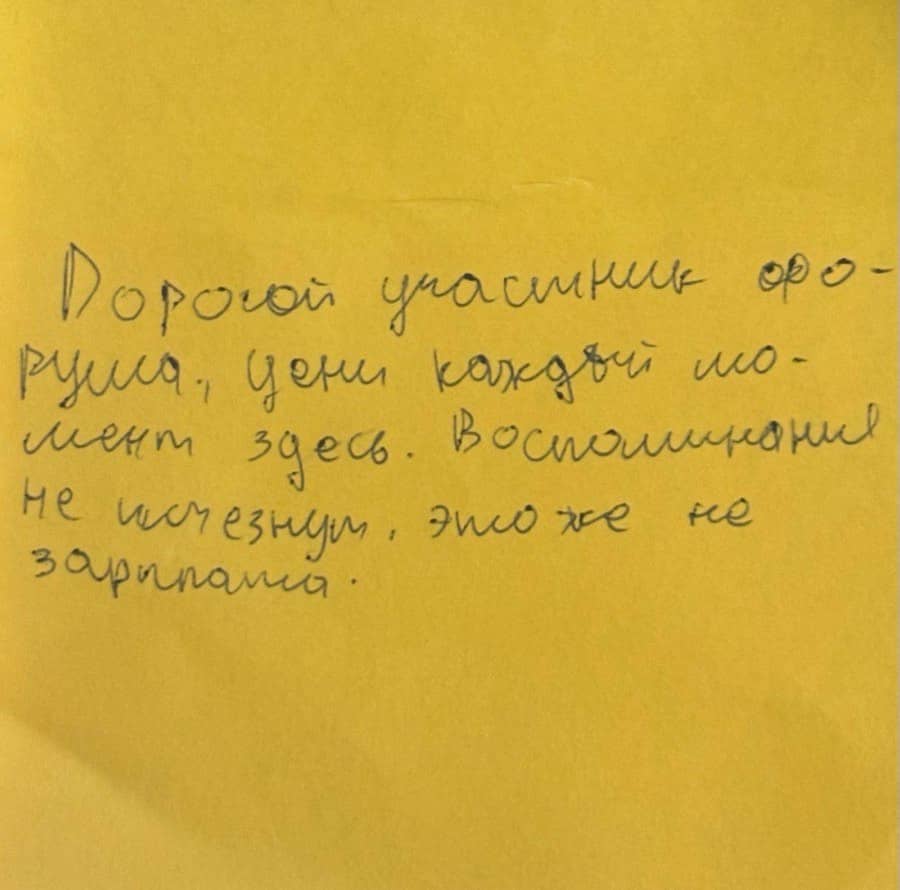 Дорогой участник фо-
рума, цени каждый мо-
мент здесь. Воспоминания
не исчезнут, это же не
зарплата.